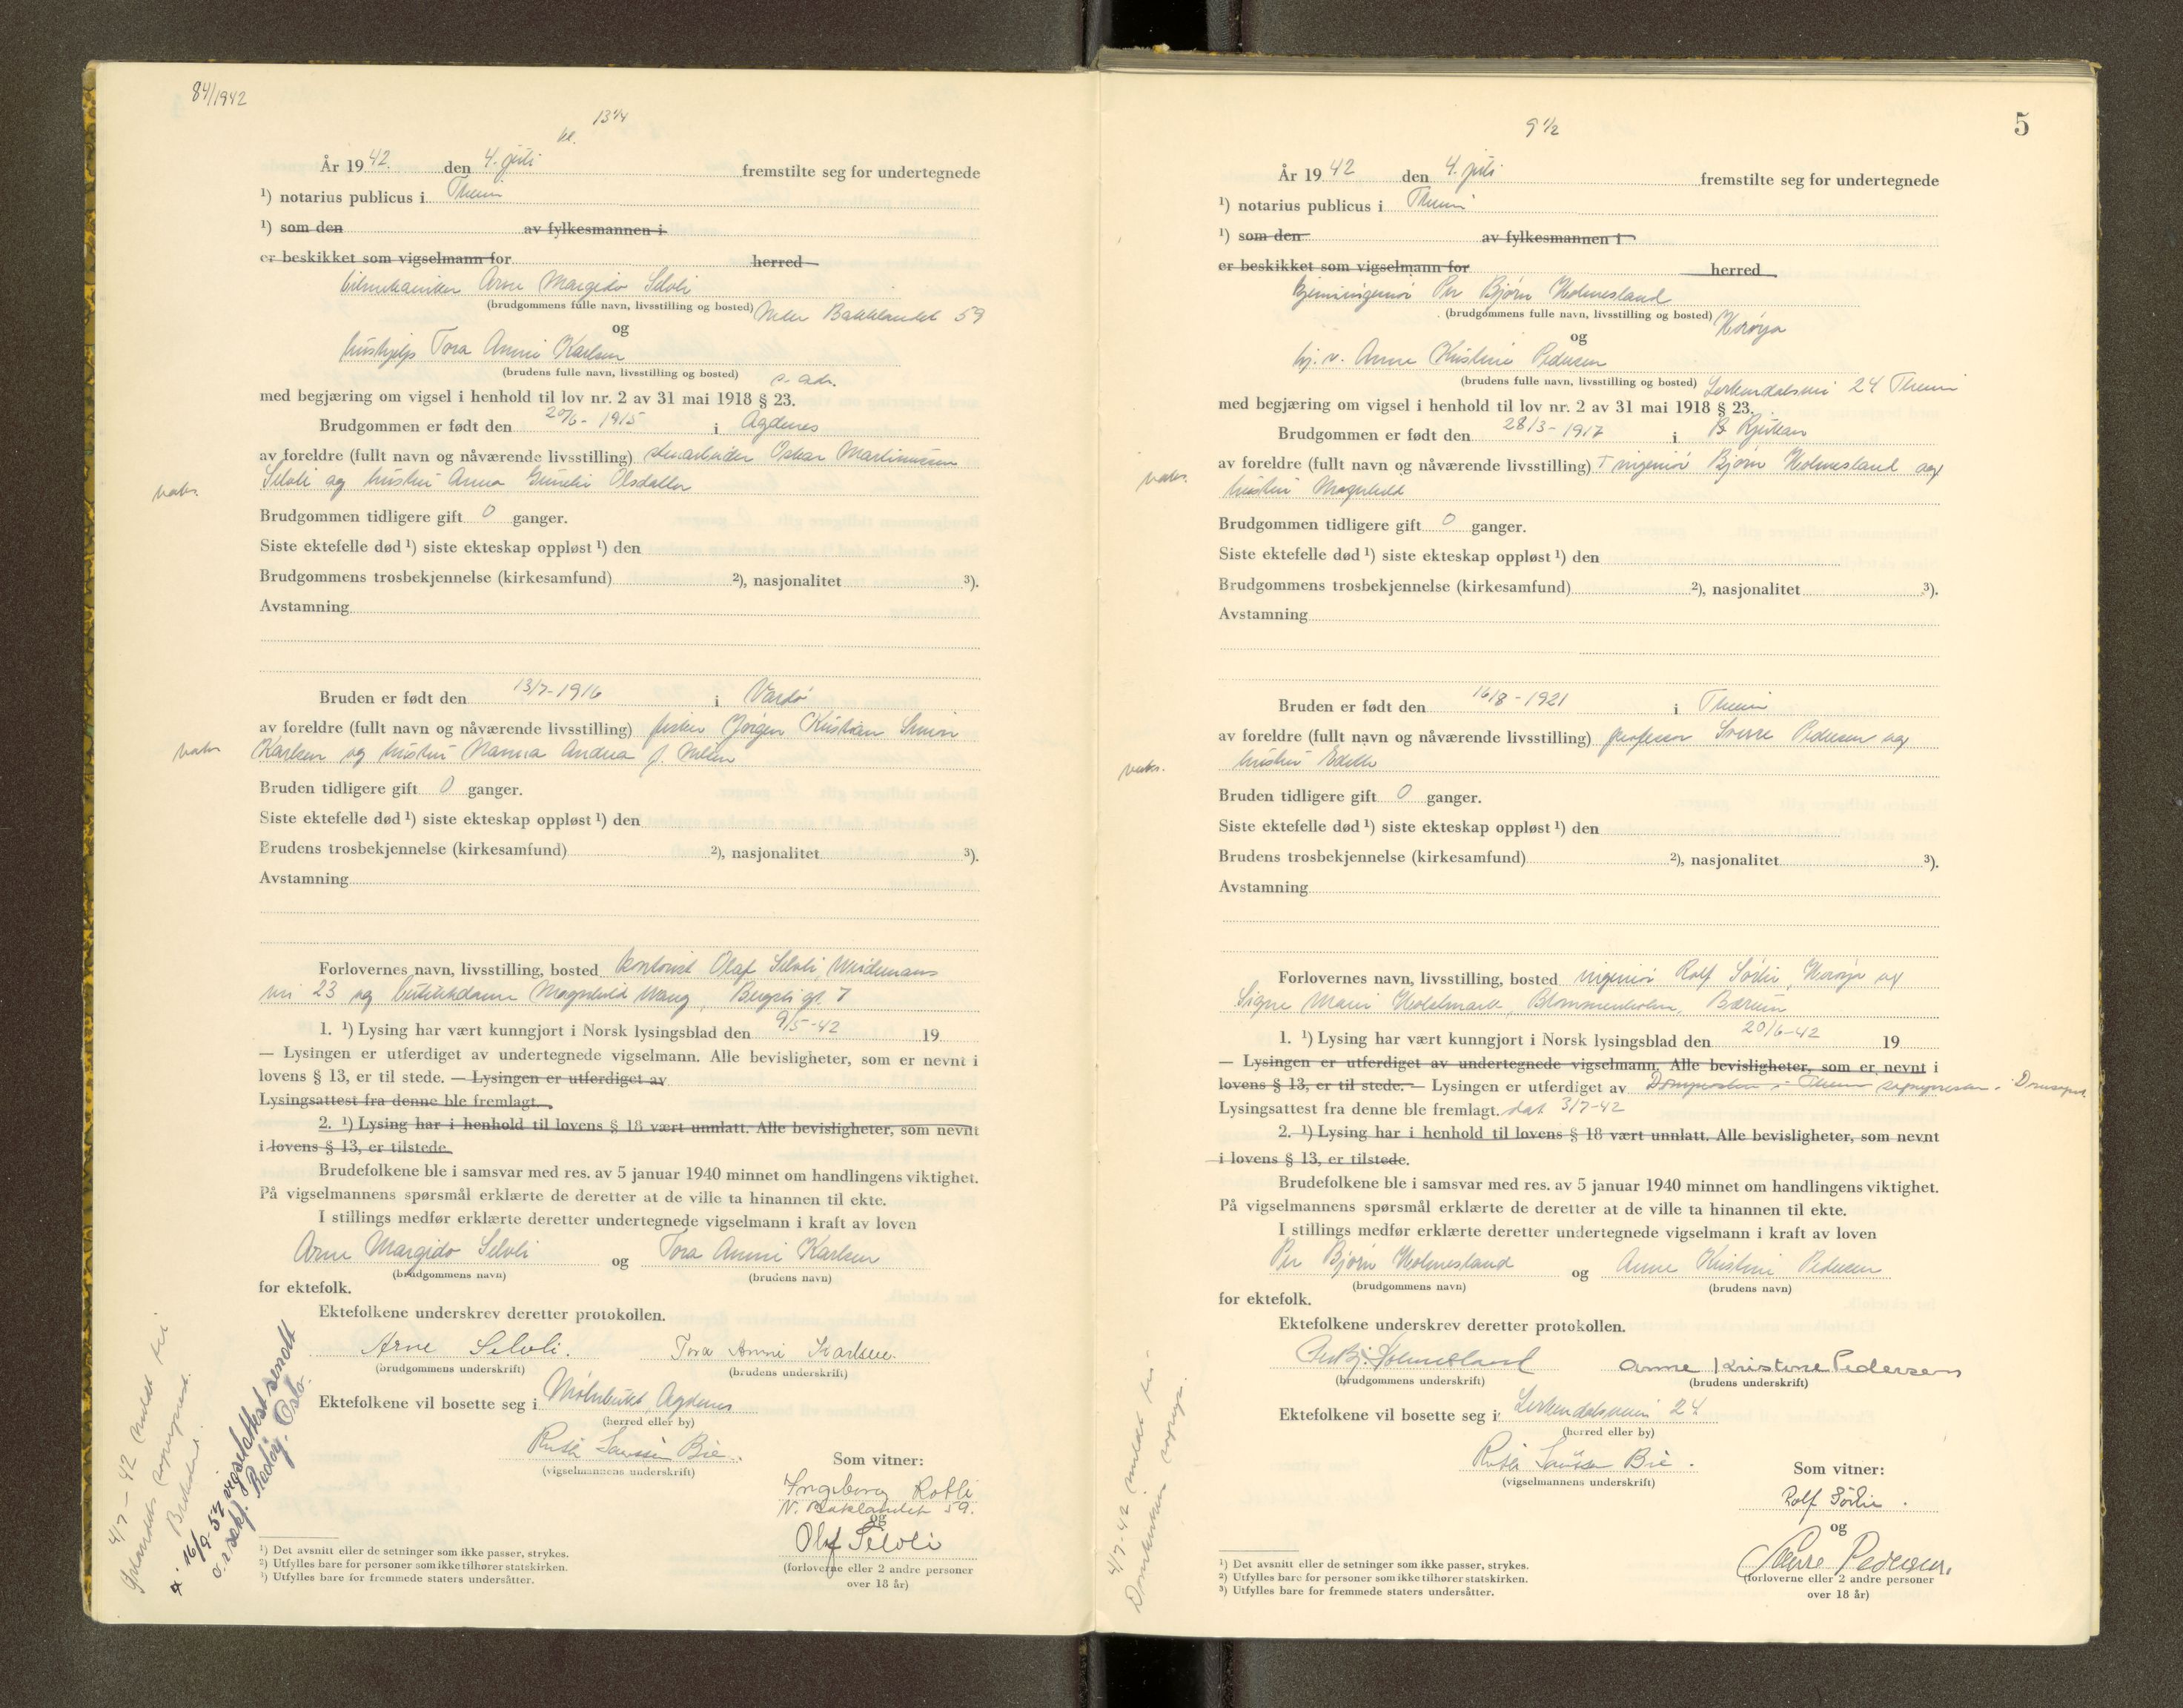 84/1942
kl. 13 1/4
År 19 42. den 4. juli fremstilte seg for undertegnede
¹) notarius publicus i Theim
¹) som den av fylkesmannen i
er beskikket som vigselmann for herred
bilmekaniker Arne Margido Selvli
(brudgommens fulle navn, livsstilling og bosted) Nedre Bakklandet 59
og
hushjelp Tora Anni Karlsen
(brudens fulle navn, livsstilling og bosted) s. adr.
med begjæring om vigsel i henhold til lov nr. 2 av 31 mai 1918 § 23.
Brudgommen er født den 20/6 - 1915 i Agdenes
av foreldre (fullt navn og nåværende livsstilling) stenarbeider Oskar Martinussen
Selvli og hustru Anna Gurelie Olsdatter
vaks.
Brudgommen tidligere gift 0 ganger.
Siste ektefelle død ¹) siste ekteskap oppløst ¹) den
Brudgommens trosbekjennelse (kirkesamfund) ²), nasjonalitet ³).
Avstamning
Bruden er født den 13/7 - 1916 i Vardø
av foreldre (fullt navn og nåværende livsstilling) fisker Jørgen Kristian
vaks
Karlsen og hustru Hanna Andrea f. Nilsen
Bruden tidligere gift 0 ganger.
Siste ektefelle død ¹) siste ekteskap oppløst ¹) den
Brudens trosbekjennelse (kirkesamfund) ²), nasjonalitet ³).
Avstamning
Forlovernes navn, livsstilling, bosted kontorist Olaf Selvli, Weidemans
vei 23 og butikkdame Magnhild Wang, Bergsli gt. 7
1. ¹) Lysing har vært kunngjort i Norsk lysingsblad den 9/5-42 19
— Lysingen er utferdiget av undertegnede vigselmann. Alle bevisligheter, som er nevnt i
lovens § 13, er til stede. — Lysingen er utferdiget av
Lysingsattest fra denne ble fremlagt.
2. ¹) Lysing har i henhold til lovens § 18 vært unnlatt. Alle bevisligheter, som nevnt
i lovens § 13, er tilstede.
Brudefolkene ble i samsvar med res. av 5 januar 1940 minnet om handlingens viktighet.
På vigselmannens spørsmål erklærte de deretter at de ville ta hinannen til ekte.
I stillings medfør erklærte deretter undertegnede vigselmann i kraft av loven
Arne Margido Selvli og Tora Anni Karlsen
(brudgommens navn) (brudens navn)
for ektefolk.
Ektefolkene underskrev deretter protokollen.
Arne Selvli. Tora Anni Karlsen.
(brudgommens underskrift) (brudens underskrift)
Ektefolkene vil bosette seg i Mølnbukt, Agdenes
(herred eller by)
Ruth Laussen Bie.
(vigselmannens underskrift)
Som vitner:
Ingeborg Rotli
N. Baklandet 59.
og
Olaf Selvli
(forloverne eller 2 andre personer
over 18 år)
4/7 - 42 meldt til
sogneprest.
x. 16/9-57 vigselattest sendt
Oslo.
¹) Det avsnitt eller de setninger som ikke passer, strykes.
²) Utfylles bare for personer som ikke tilhører statskirken.
³) Utfylles bare for fremmede staters undersåtter.
5
9 1/2
År 19 42 den 4. juli fremstilte seg for undertegnede
¹) notarius publicus i Theim
¹) som den av fylkesmannen i
er beskikket som vigselmann for herred
kjemiingeniør Per Bjørn Holmesland
(brudgommens fulle navn, livsstilling og bosted) Herøya
og
hj. v. Anne Kristine Pedersen
(brudens fulle navn, livsstilling og bosted) Lerkendalsvei 24 Theim
med begjæring om vigsel i henhold til lov nr. 2 av 31 mai 1918 § 23.
Brudgommen er født den 28/3 - 1917 i Rjukan
av foreldre (fullt navn og nåværende livsstilling) ingeniør Bjørn Holmesland og
vaks.
hustru Magnhild
Brudgommen tidligere gift 0 ganger.
Siste ektefelle død ¹) siste ekteskap oppløst ¹) den
Brudgommens trosbekjennelse (kirkesamfund) ²), nasjonalitet ³).
Avstamning
Bruden er født den 16/8 - 1921 i Theim
av foreldre (fullt navn og nåværende livsstilling) professor Sverre Pedersen og
vaks.
hustru Edith
Bruden tidligere gift 0 ganger.
Siste ektefelle død ¹) siste ekteskap oppløst ¹) den
Brudens trosbekjennelse (kirkesamfund) ²), nasjonalitet ³).
Avstamning
Forlovernes navn, livsstilling, bosted ingeniør Rolf Sørlie, Herøya og
Signe Marie Blommenholm, Bærum
1. ¹) Lysing har vært kunngjort i Norsk lysingsblad den 20/6-42 19
— Lysingen er utferdiget av undertegnede vigselmann. Alle bevisligheter, som er nevnt i
lovens § 13, er til stede. — Lysingen er utferdiget av Domprosten i Theim sognepresten i
Lysingsattest fra denne ble fremlagt. dat 3/7-42
2. ¹) Lysing har i henhold til lovens § 18 vært unnlatt. Alle bevisligheter, som nevnt
i lovens § 13, er tilstede.
Brudefolkene ble i samsvar med res. av 5 januar 1940 minnet om handlingens viktighet.
På vigselmannens spørsmål erklærte de deretter at de ville ta hinannen til ekte.
I stillings medfør erklærte deretter undertegnede vigselmann i kraft av loven
Per Bjørn Holmesland og Anne Kristine Pedersen
(brudgommens navn) (brudens navn)
for ektefolk.
Ektefolkene underskrev deretter protokollen.
Per Bj. Holmesland Anne Kristine Pedersen
(brudgommens underskrift) (brudens underskrift)
Ektefolkene vil bosette seg i Lerkendalsveien 24
(herred eller by)
Ruth Laussen Bie.
(vigselmannens underskrift)
Som vitner:
Rolf Sörlie.
og
Sverre Pedersen.
(forloverne eller 2 andre personer
over 18 år)
4/7-42 meldt til
Domkirkens sognepr.
¹) Det avsnitt eller de setninger som ikke passer, strykes.
²) Utfylles bare for personer som ikke tilhører statskirken.
³) Utfylles bare for fremmede staters undersåtter.